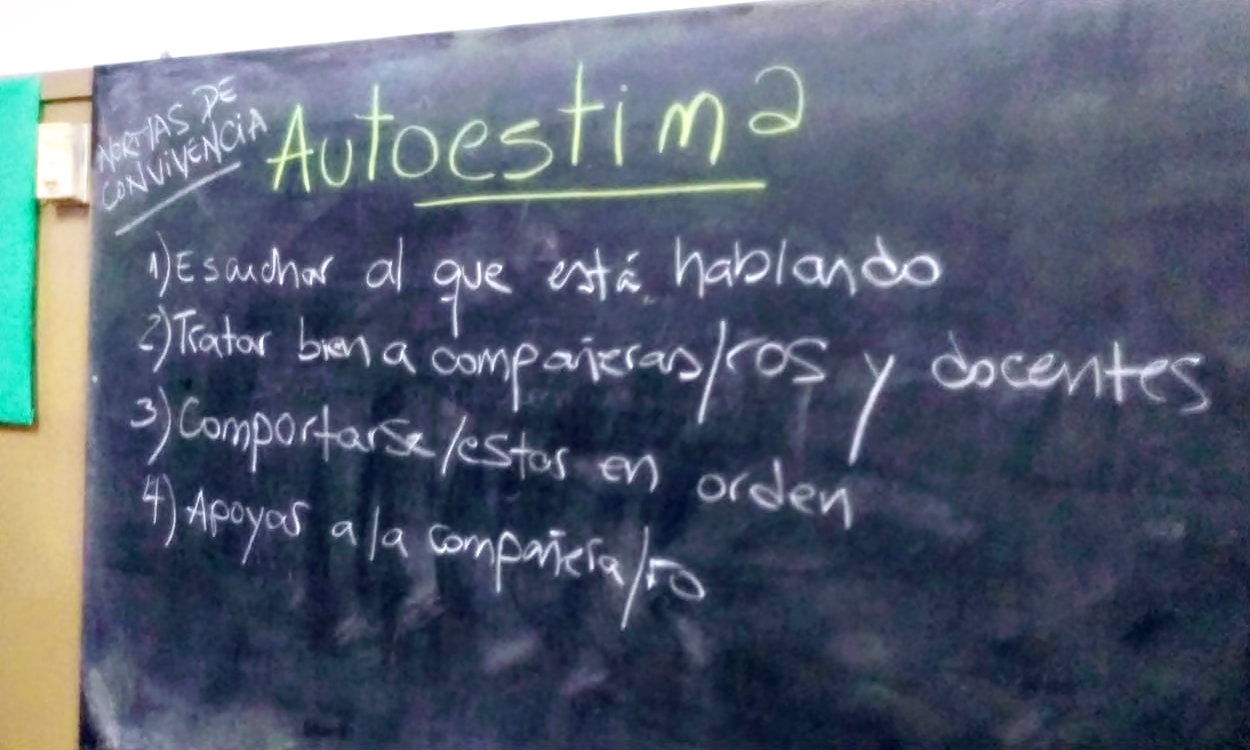 NORMAS DE
CONVIVENCIA
Autoestima
1) Escuchar al que está hablando
2) Tratar bien a compañeras/ros y docentes
3) Comportarse/estar en orden
4) Apoyar a la compañera/ro